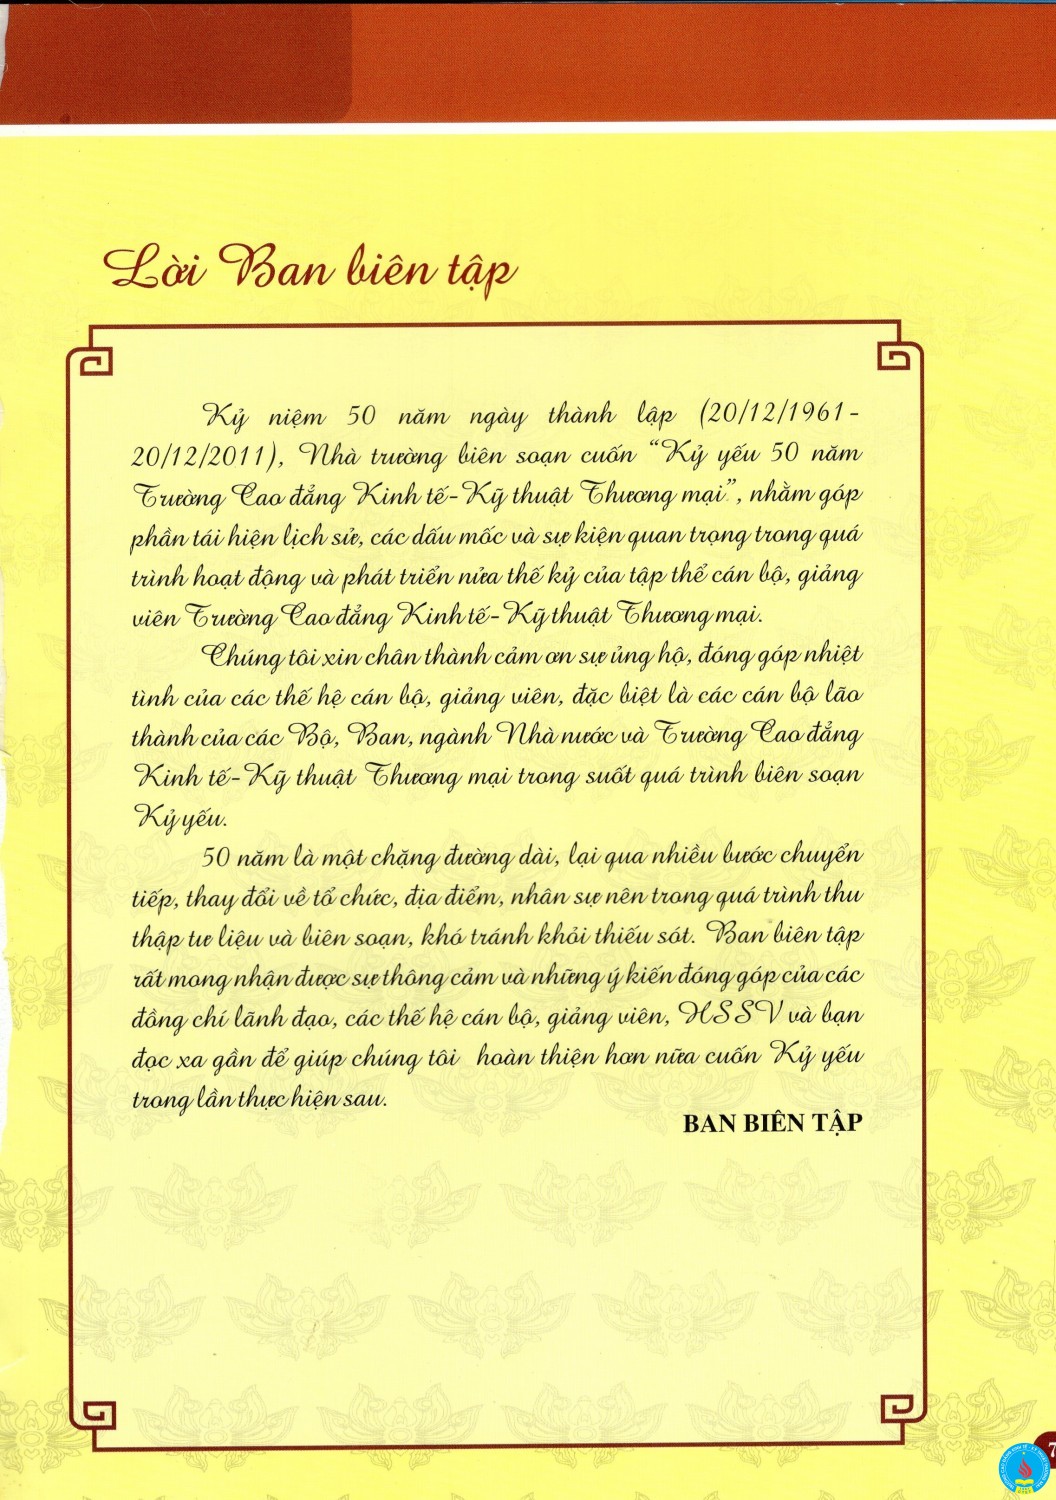 Lời Ban biên tập
Kỷ niệm 50 năm ngày thành lập (20/12/1961-
20/12/2011), Nhà trường biên soạn cuốn “Kỷ yếu 50 năm
Trường Cao đẳng Kinh tế-Kỹ thuật Thương mại”, nhằm góp
phần tái hiện lịch sử, các dấu mốc và sự kiện quan trọng trong quá
trình hoạt động và phát triển nửa thế kỷ của tập thể cán bộ, giảng
viên Trường Cao đẳng Kinh tế-Kỹ thuật Thương mại.
Chúng tôi xin chân thành cảm ơn sự ủng hộ, đóng góp nhiệt
tình của các thế hệ cán bộ, giảng viên, đặc biệt là các cán bộ lão
thành của các Bộ, Ban, ngành Nhà nước và Trường Cao đẳng
Kinh tế-Kỹ thuật Thương mại trong suốt quá trình biên soạn
Kỷ yếu.
50 năm là một chặng đường dài, lại qua nhiều bước chuyển
tiếp, thay đổi về tổ chức, địa điểm, nhân sự nên trong quá trình thu
thập tư liệu và biên soạn, khó tránh khỏi thiếu sót. Ban biên tập
rất mong nhận được sự thông cảm và những ý kiến đóng góp của các
đồng chí lãnh đạo, các thế hệ cán bộ, giảng viên, HSSV và bạn
đọc xa gần để giúp chúng tôi hoàn thiện hơn nữa cuốn Kỷ yếu
trong lần thực hiện sau.
BAN BIÊN TẬP
7